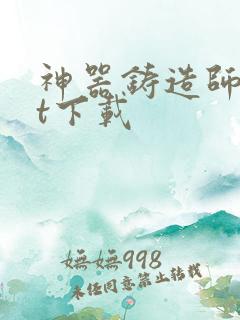 神器鑄造師
t下載
嫵嫵998
未经同意禁止转载